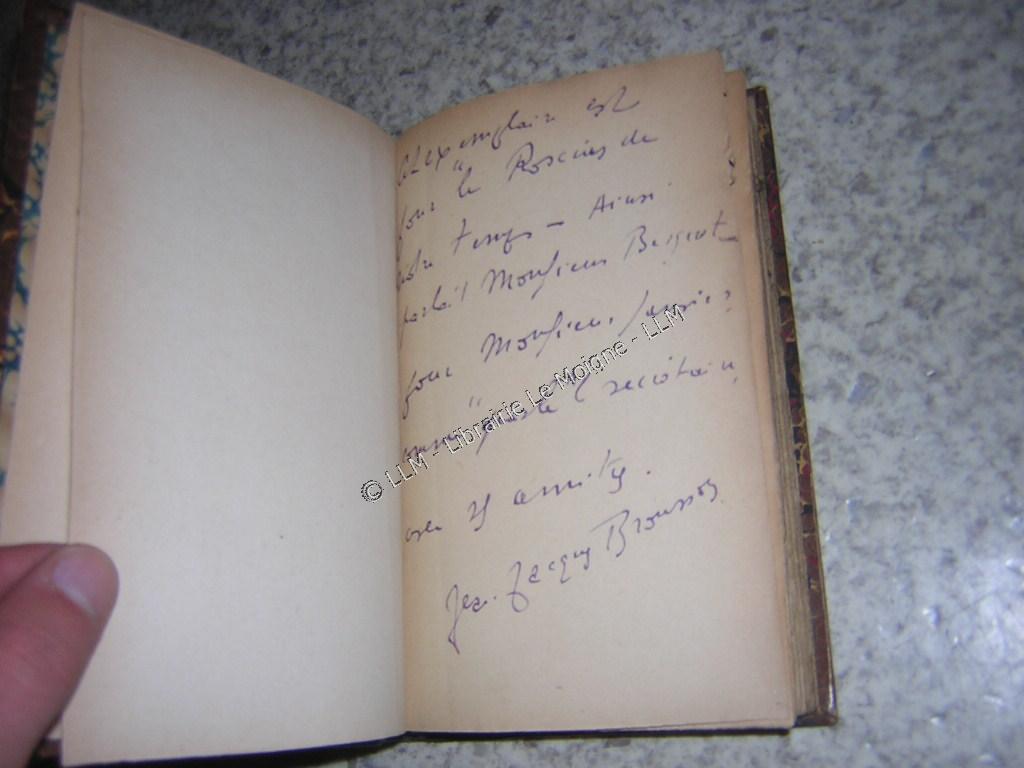 Cet exemplaire est
pour le "Roscius de
notre temps — Ainsi
parlait Monsieur Bergeret
pour Monsieur
secrétaire,
amitiés.
Jean-Jacques Brousson
© LLM - Librairie Le Moigne - LLM